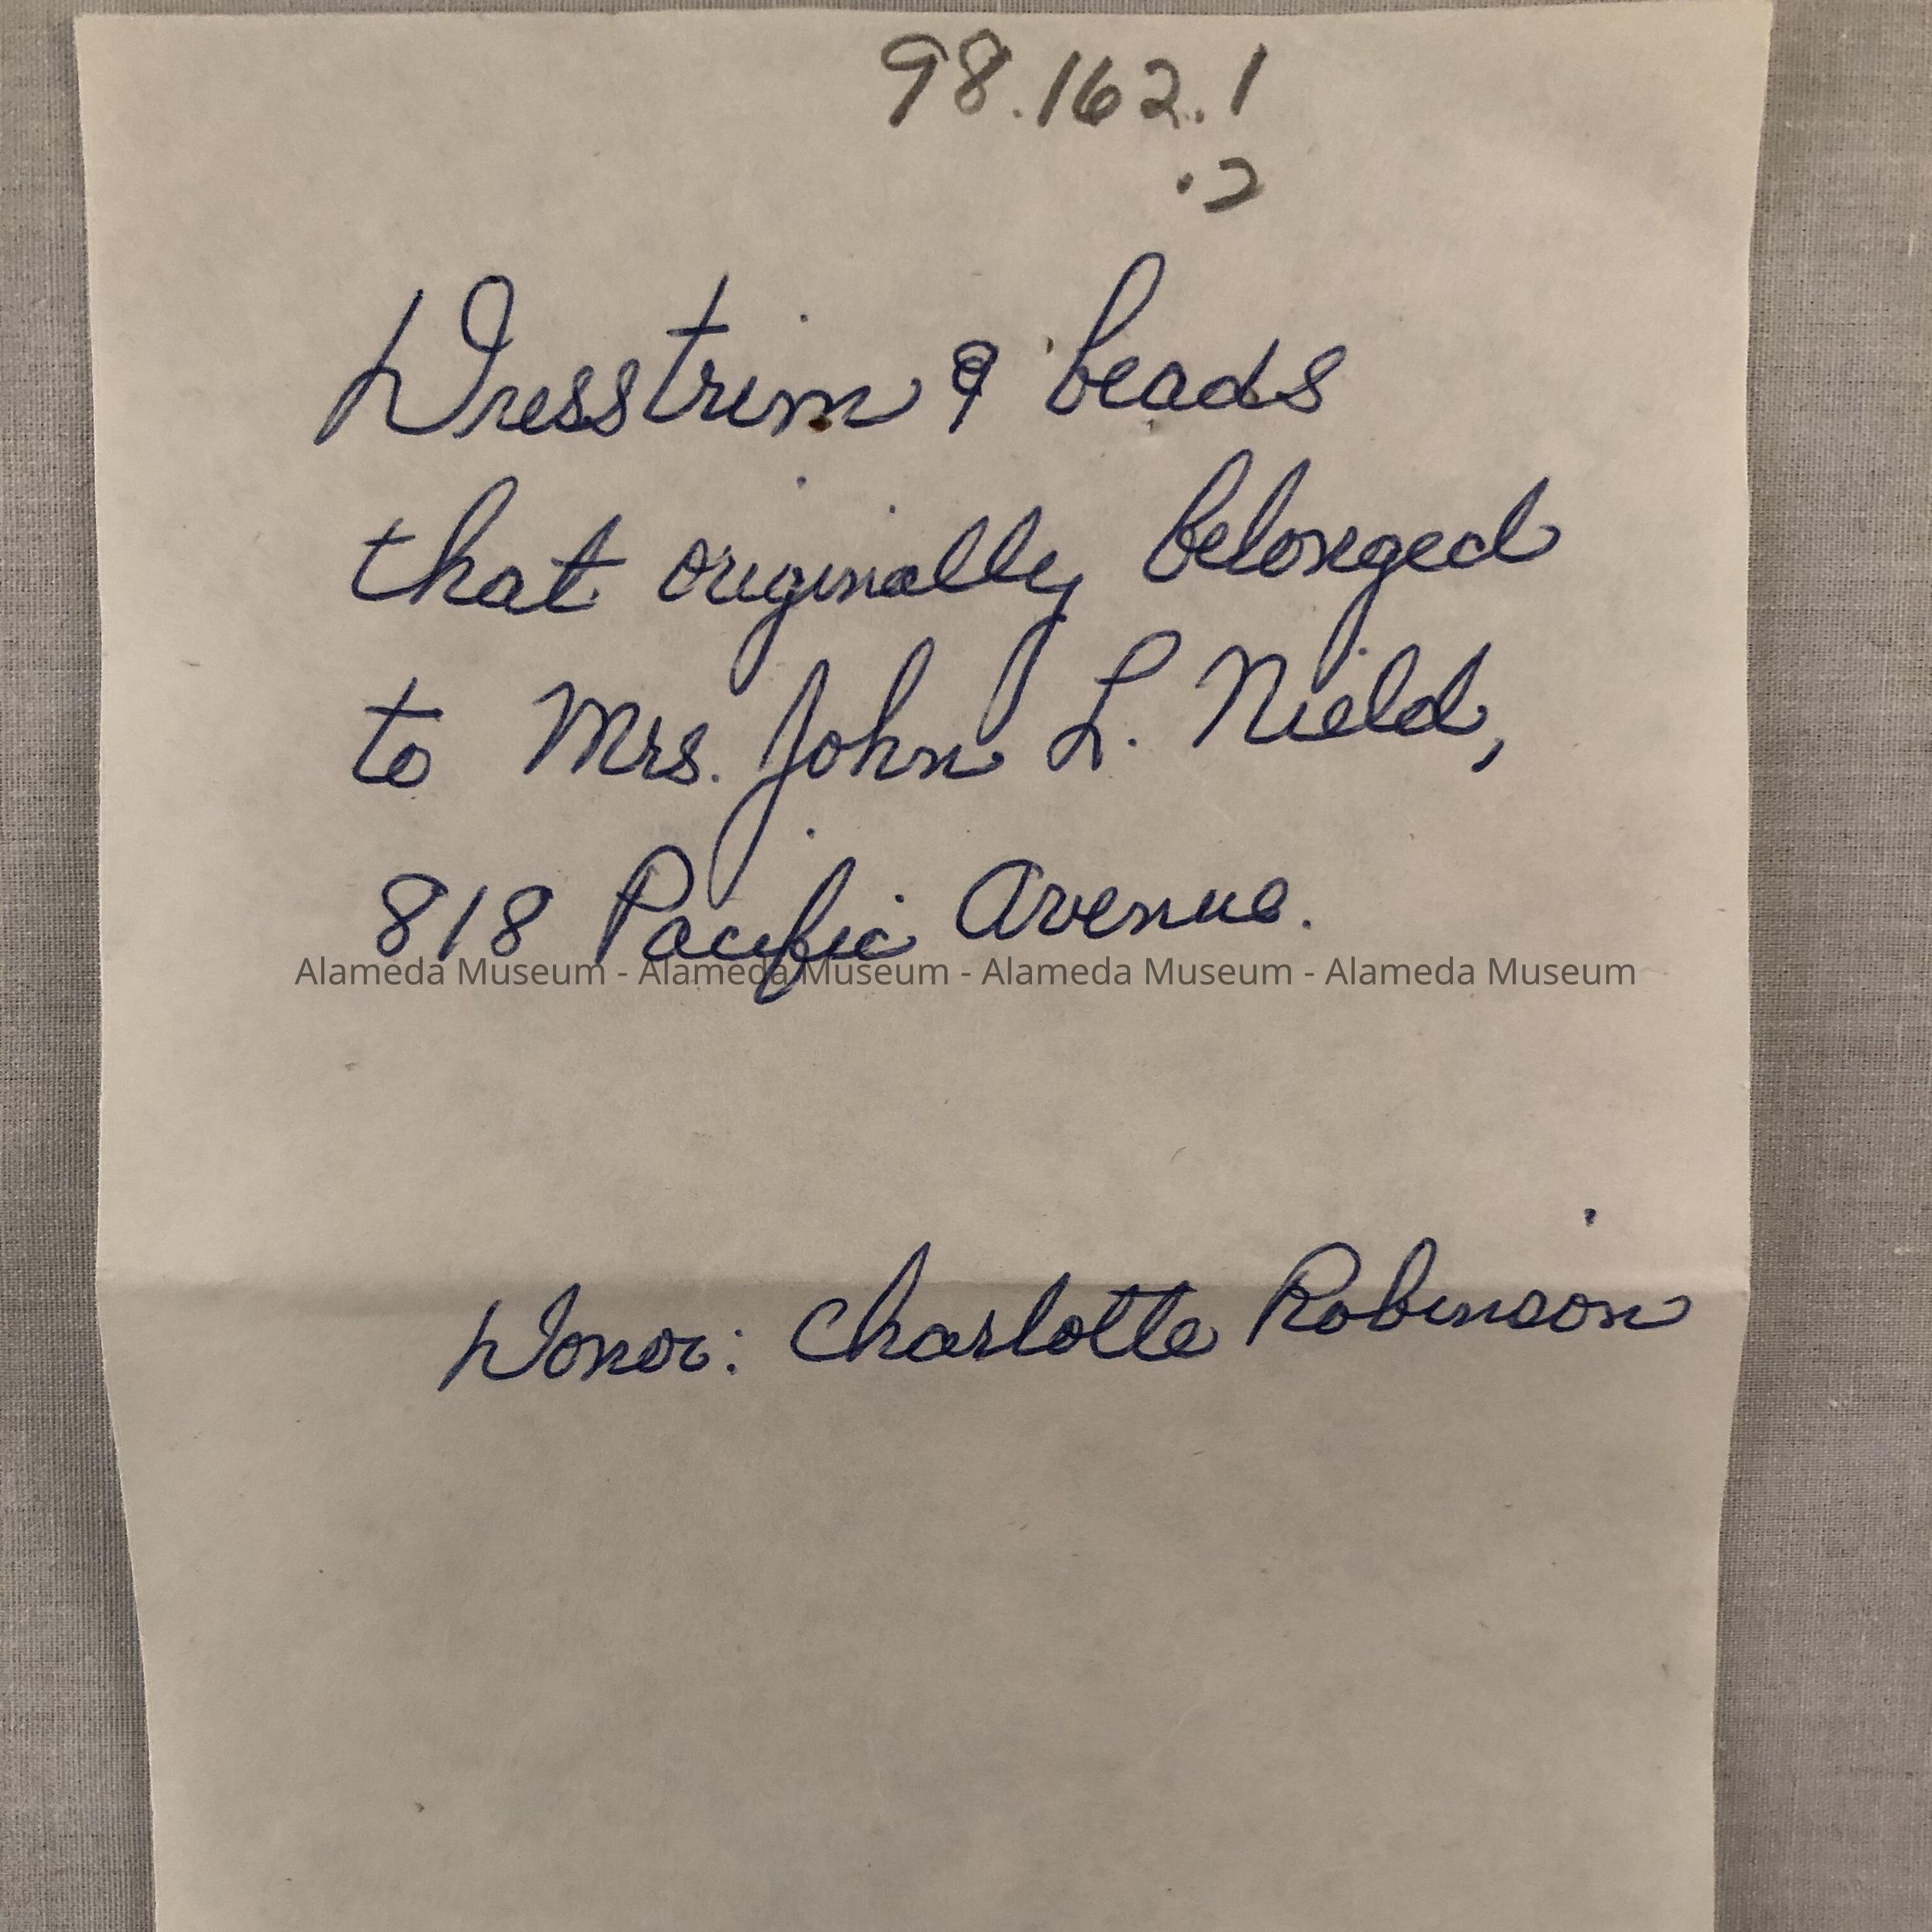 98.162.1
.2
Dress trim & beads
that originally belonged
to Mrs. John L. Nield,
818 Pacific Avenue.
Alameda Museum - Alameda Museum - Alameda Museum - Alameda Museum
Donor: Charlotte Robinson